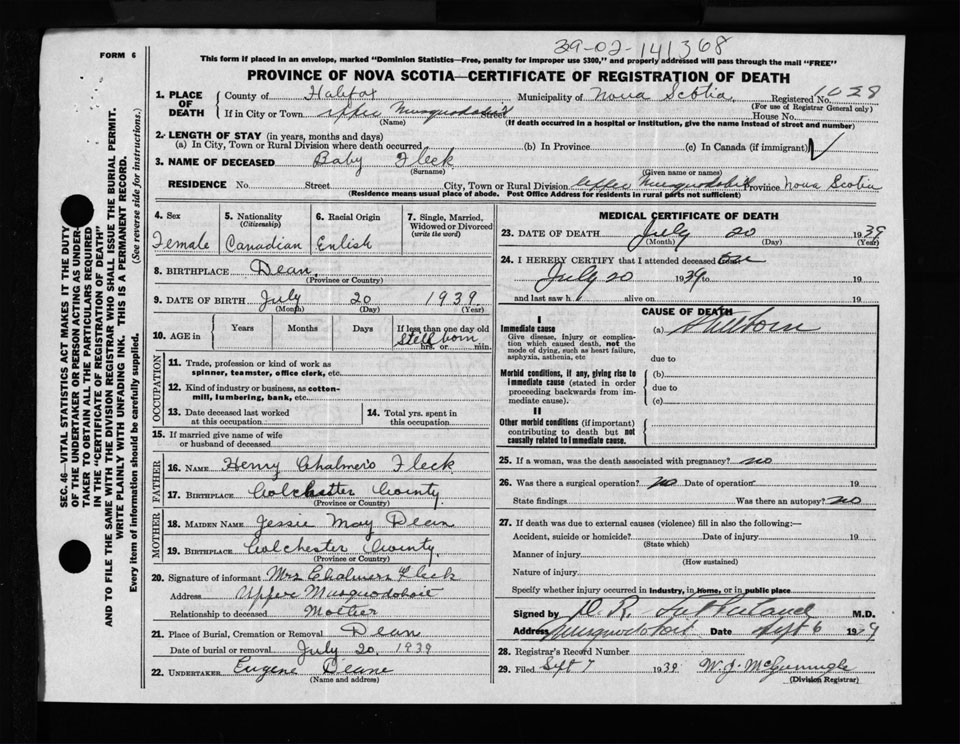 39-02-141368
FORM 6
This form if placed in an envelope, marked "Dominion Statistics—Free, penalty for improper use $300," and properly addressed will pass through the mail "FREE"
PROVINCE OF NOVA SCOTIA—CERTIFICATE OF REGISTRATION OF DEATH
SEC. 46—VITAL STATISTICS ACT MAKES IT THE DUTY
OF THE UNDERTAKER OR PERSON ACTING AS UNDER-
TAKER TO OBTAIN ALL THE PARTICULARS REQUIRED
IN THE "CERTIFICATE OF REGISTRATION OF DEATH"
AND TO FILE THE SAME WITH THE DIVISION REGISTRAR WHO SHALL ISSUE THE BURIAL PERMIT.
WRITE PLAINLY WITH UNFADING INK. THIS IS A PERMANENT RECORD.
Every item of information should be carefully supplied. (See reverse side for instructions.)
1. PLACE OF DEATH County of Halifax Municipality of Nova Scotia Registered No. 1028
(For use of Registrar General only)
If in City or Town Upper Musquodoboit Street House No.
(Name) (If death occurred in a hospital or institution, give the name instead of street and number)
2. LENGTH OF STAY (in years, months and days)
(a) In City, Town or Rural Division where death occurred (b) In Province (c) In Canada (if immigrant)
3. NAME OF DECEASED Baby Fleck
(Surname) (Given name or names)
RESIDENCE No. Street City, Town or Rural Division Upper Musquodoboit Province Nova Scotia
(Residence means usual place of abode. Post Office Address for residents in rural parts not sufficient)
4. Sex 5. Nationality (Citizenship) 6. Racial Origin 7. Single, Married, Widowed or Divorced (write the word)
Female Canadian Enlish
8. BIRTHPLACE Dean
(Province or Country)
9. DATE OF BIRTH July 20 1939
(Month) (Day) (Year)
10. AGE in Years Months Days If less than one day old
Stellborn
hrs. or min.
OCCUPATION
11. Trade, profession or kind of work as
spinner, teamster, office clerk, etc.
12. Kind of industry or business, as cotton-
mill, lumbering, bank, etc.
13. Date deceased last worked at this occupation 14. Total yrs. spent in this occupation
15. If married give name of wife
or husband of deceased
FATHER
16. NAME Henry Chalmers Fleck
17. BIRTHPLACE Colchester County
(Province or Country)
MOTHER
18. MAIDEN NAME Jessie May Dean
19. BIRTHPLACE Colchester County
(Province or Country)
20. Signature of informant Mrs Chalmers Fleck
Address Upper Musquodoboit
Relationship to deceased Mother
21. Place of Burial, Cremation or Removal Dean
Date of burial or removal July 20, 1939
22. UNDERTAKER Eugene Deane
(Name and address)
MEDICAL CERTIFICATE OF DEATH
23. DATE OF DEATH July 20 1939
(Month) (Day) (Year)
24. I HEREBY CERTIFY that I attended deceased
July 20 1939 to 19
and last saw h alive on 19
CAUSE OF DEATH
I
Immediate cause (a) Stillborn
Give disease, injury or complica-
tion which caused death, not the
mode of dying, such as heart failure,
asphyxia, asthenia, etc
due to
Morbid conditions, if any, giving rise to
immediate cause (stated in order
proceeding backwards from im-
mediate cause).
(b)
due to
(c)
II
Other morbid conditions (if important)
contributing to death but not
causally related to immediate cause.
25. If a woman, was the death associated with pregnancy? no
26. Was there a surgical operation? no Date of operation 19
State findings Was there an autopsy? no
27. If death was due to external causes (violence) fill in also the following:—
Accident, suicide or homicide? Date of injury 19
(State which)
Manner of injury
(How sustained)
Nature of injury
Specify whether injury occurred in Industry, in Home, or in public place
Signed by D. R. M.D.
Address Musquodoboit Date Sept 6 1939
28. Registrar's Record Number
29. Filed Sept 7 1939 W. J.
(Division Registrar)